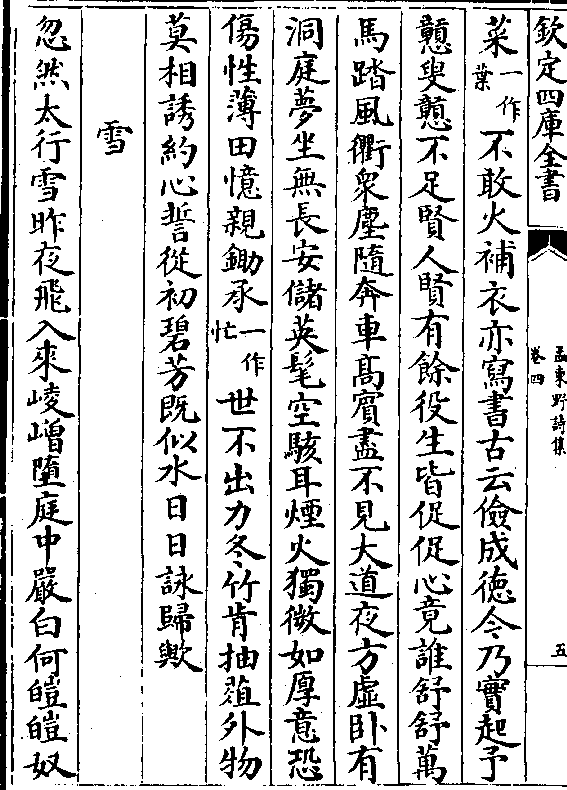 欽定四庫全書
孟東野詩集
卷四
五
菜一作葉不敢火補衣亦寫書古云儉成徳今乃實起予
戇叟戇不足賢人賢有餘役生皆促促心竟誰舒舒萬
馬踏風衢衆塵隨奔車髙賓盡不見大道夜方虛卧有
洞庭夢坐無長安儲英髦空駭耳煙火獨微如厚意恐
傷性薄田憶親鋤承一作忙世不出力冬竹肯抽菹外物
莫相誘約心誓從初碧芳既似水日日詠歸歟
雪
忽然太行雪昨夜飛入來崚嶒墮庭中嚴白何皚皚奴